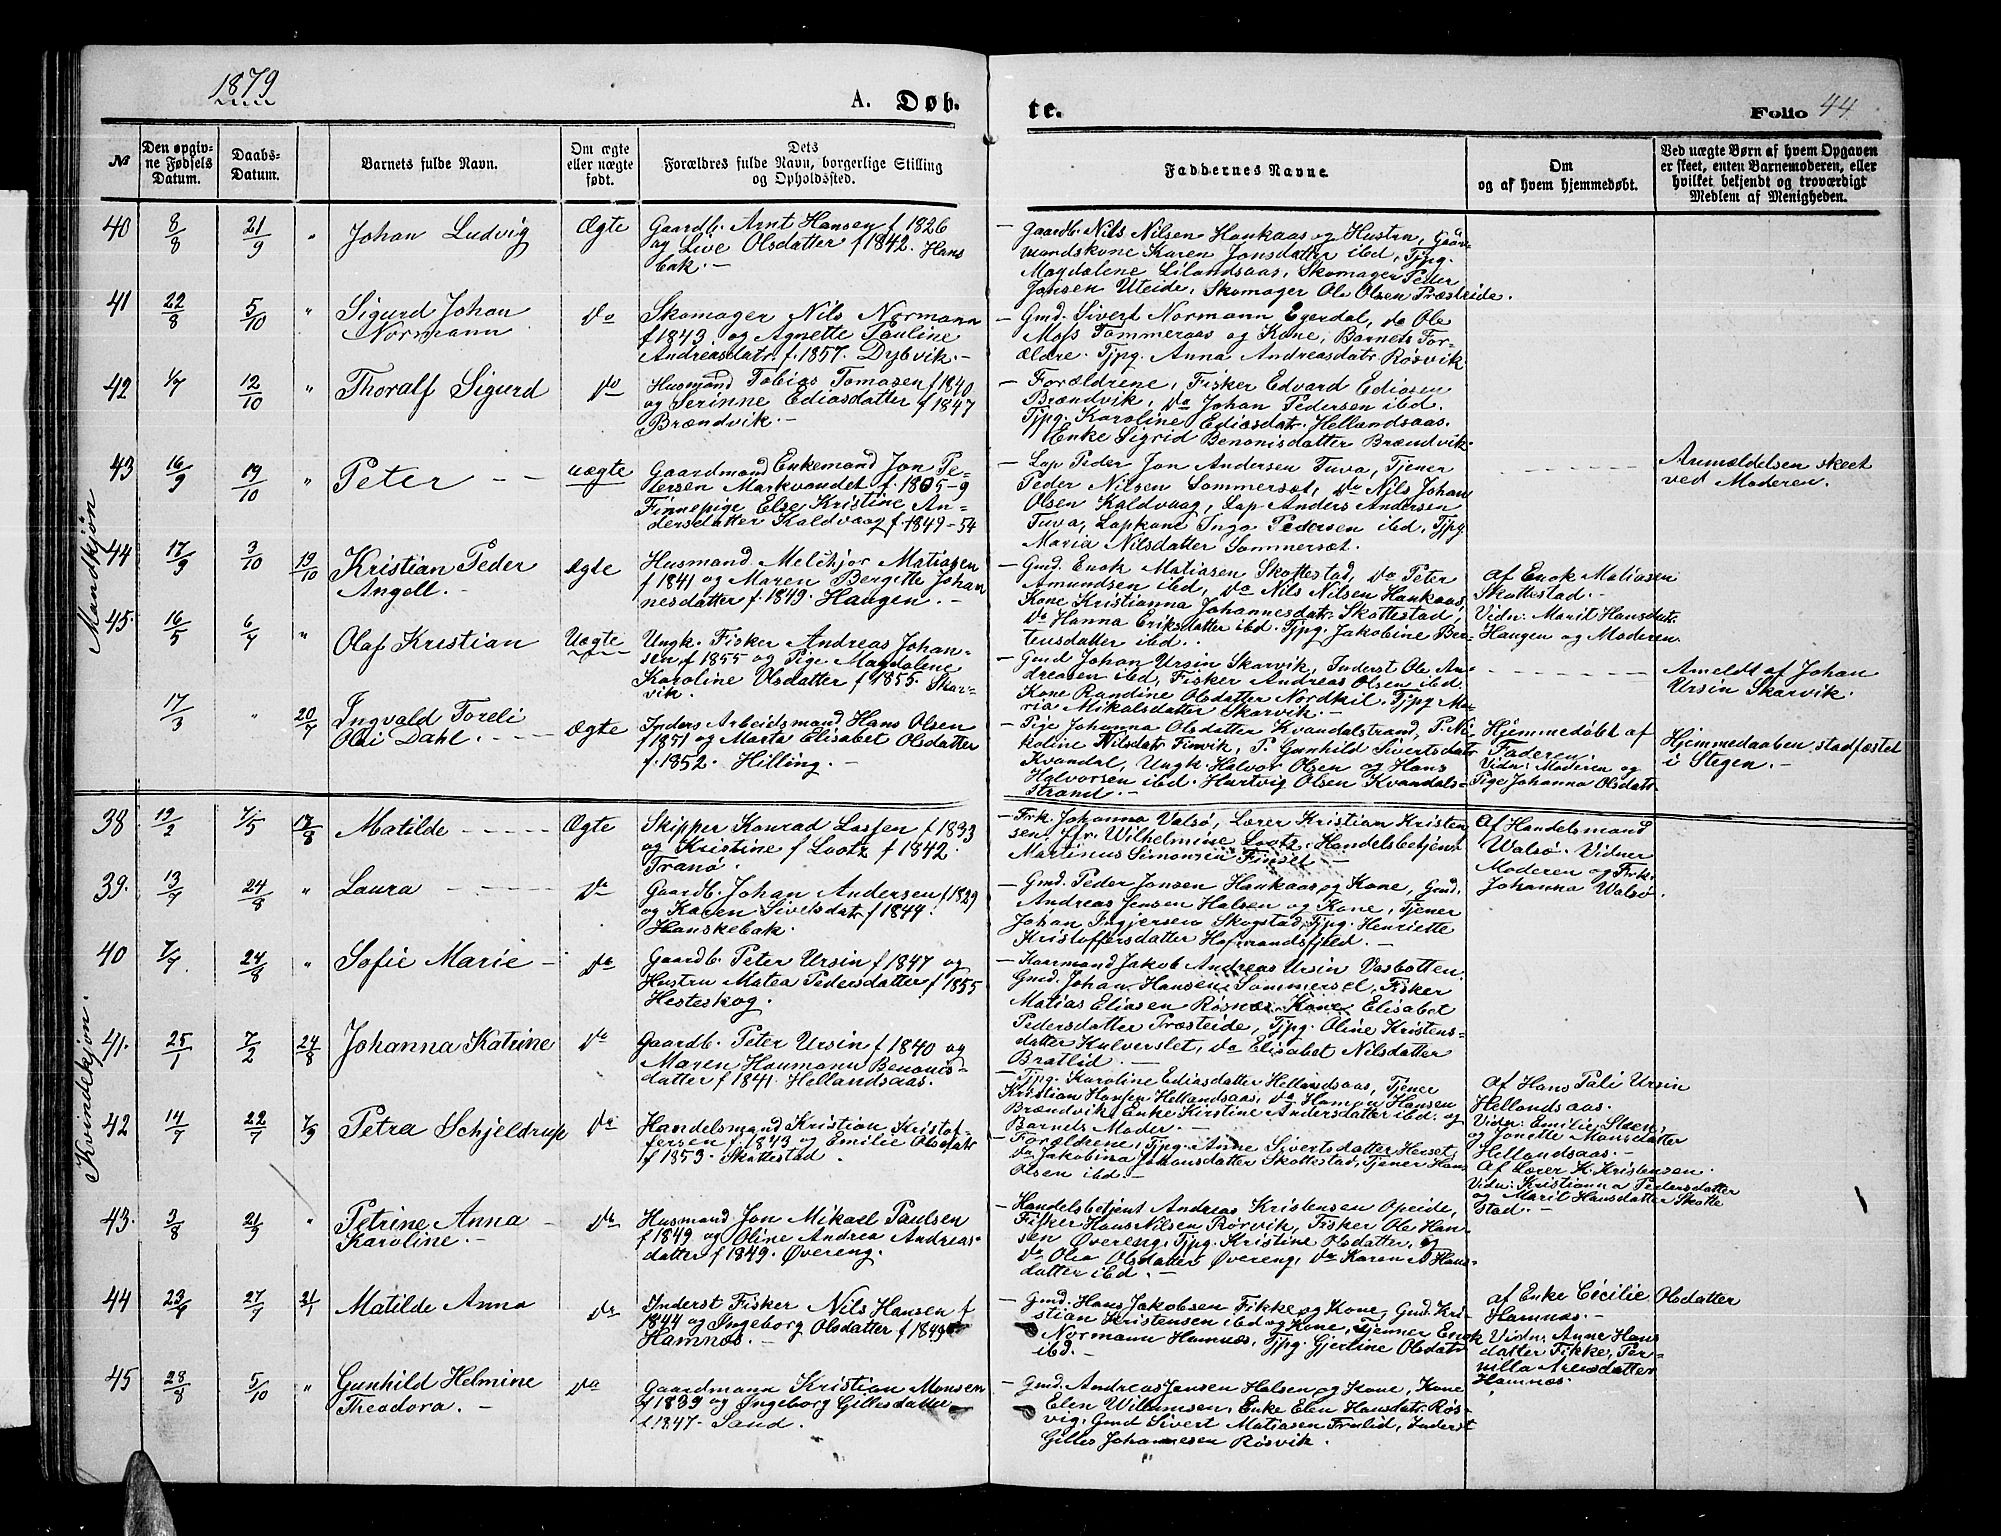 1879
A. Døb.
te.
Folio 44
No
Den opgiv-
ne Fødsels
Datum.
Daabs-
Datum.
Barnets fulde Navn.
Om ægte
eller uægte
født.
Dets
Forældres fulde Navn, borgerlige Stilling
og Opholdssted.
Faddernes Navne.
Om
og af hvem hjemmedøbt.
Ved uægte Børn af hvem Opgaven
er skeet, enten Barnemoderen, eller
hvilket bekjendt og troværdigt
Medlem af Menigheden.
Mandkjøn
40 8/8 21/9 " Johan Ludvig Ægte
Gaardb. Arnt Hansen f 1826
og Live Olsdatter f 1842. Hans
bak. -
- Gaardb. Nils Nilsen Haukaas og Hustru, Gaar-
mandskone Karen Jonsdatter ibd, Tjpg.
Magdalene Lilandsaas, Skomager Peder
Jonsen Uteide, Skomager Ole Olsen Præsteide.
41 22/8 5/10 " Sigurd Johan
Normann
do
Skomager Nils Normann
f 1843 og Agnette Pauline
Andreasdatr. f. 1857. Dybvik. -
- Gmd. Sivert Normann Egerdal, do Ole
Moss Tommeraas og Kone, Barnets For-
ældre. Tjpg. Anna Andreasdatr Røsvik
42 1/7 12/10 " Thoralf Sigurd do
Husmand Tobias Tomasen f 1840
og Serinne Ediasdatter f 1847
Brændvik. -
- Forældrene, Fisker Edvard Ediasen
Brændvik, do Johan Pedersen ibd.
Tjpg. Karoline Ediasdatr. Hellandsaas.
Enke Sigrid Benonisdatter Brændvik.
43 16/9 19/10 " Peter - - uægte
Gaardmand Enkemand Jon Pe-
tersen Markvandet f. 1805-9
Finnepige Else Kristine An-
dersdatter Kaldvaag f. 1849-54
- Lap Peder Jon Andersen Tuva, Tjener
Peder Nilsen Sommerset, do Nils Johan
Olsen Kaldvaag, Lap Anders Andersen
Tuva, Lapkone Inga Pedersen ibd, Tjpg
Maria Nilsdatter Sommerset.
Anmeldelsen skeet
ved Moderen.
44 17/9 3/10 19/10 Kristian Peder
Angell. -
Ægte
Husmand Melchjor Matiasen
f 1841 og Maren Bergitte Johan
nesdatter f. 1849. Haugen. -
- Gmd. Enok Matiasen Skottestad, do Peter
Amundsen ibd, do Nils Nilsen Haukaas,
Kone Kristianna Johannesdatr. Skottestad,
do Hanna Eriksdatter ibd. Tjpg. Jakobine Ber-
tensdatter ibd.
af Enok Matiasen
Skottestad. -
Vidn: Marit Hansdatr.
Haugen og Moderen.
45. 16/5 6/7 " Olaf Kristian Uægte
Ungk. Fisker Andreas Johan-
sen f 1855 og Pige Magdalene
Karoline Olsdatter f 1855. Skar-
vik.
- Gmd Johan Ursin Skarvik, Inderst Ole An-
dreasen ibd, Fisker Andreas Olsen ibd.
Kone Randine Olsdatter Nordkil. Tjpg Ma-
ria Mikalsdatter Skarvik. -
Ameldt af Johan
Ursin Skarvik.
17/3 " 20/7 Ingvald Toreli
Olai Dahl. -
Ægte
Inders Arbeidsmand Hans Olsen
f 1851 og Marta Elisabet Olsdatter
f. 1852. Hilling. -
- Pige Johanna Olsdatter Kvandalstrand, P. Ni-
koline Nilsdatr. Finvik, P. Gunhild Sivertsdatr
Kvandal, Ungk. Halvor Olsen og Hans
Halvorsen ibd. Hartvig Olsen Kvandals-
strand. -
Hjemmedøbt af
Faderen.
Vidn: Moderen og
Pige Johanna Olsdatr
Hjemmedaaben stadfæstet
i Stegen. -
Kvindekjøn.
38 19/2 7/5 17/8 Matilde - Ægte
Skipper Konrad Lassen f 1833
og Kristine f Lootz f 1842.
Tranø.
- Frk. Johanna Valsø, Lærer Kristian Kristen
sen, Lfr. Wilhelmine Lootz. Handelsbetjent
Martinus Simonsen Finset -
Af Handelsmand
Walsø. Vidner
Moderen og Frk.
Johanna Walsø.
39. 13/7 24/8 " Laura - do
Gaardb. Johan Andersen f 1829
og Karen Siverts­datr f 1844.
Hanskebak.
- Gmd. Peder Jonsen Haukaas og Kone, Gmd.
Andreas Jensen Halsen og Kone, Tjener
Johan Ingjersen Skogstad, Tjpg. Henriette
Kristoffersdatter Hofmandsfjeld. -
40 7/7 24/8 " Sofie Marie - do
Gaardb. Peter Ursin f 1847 og
Hustru Matea Pedersdatter f 1855
Hesteskog.
- Kaarmand Jakob Andreas Ursin Vasbotten.
Gmd. Johan Hansen Sommersel, Fisker
Matias Eliasen Røsnæs, Kone Elisabet
Pedersdatter Præsteide, Tjpg. Oline Kristens-
datter Kulverslet, do Elisabet Nilsdatter
Bratlid. -
41. 25/1 7/2 24/8 Johanna Katrine do
Gaardb. Peter Ursin f 1840 og
Maren Haumann Benonis-
datter f 1841. Hellandsaas.
- Tjpg. Karoline Ediasdatter Hellandsaas, Tjener
Kristian Hansen Hellandsaas, do Hamon Hansen
Brændvik, Enke Kirstine Andersdatter ibd. og
Barnets Moder. -
af Hans Pali Ursin
Hellandsaas.
Vidn: Emilie Steen,
og Jonette Monsdatter
Hellandsaas. -
42 14/7 22/7 7/9 Petra Schjeldrup do
Handelsmand Kristian Kristof-
fersen f. 1843 og Emilie Olsdatr
f 1853. Skottestad
- Forældrene, Tjpg. Anne Sivertsdatter Herset,
do Jakobina Johansdatter Skottestad, Tjener Hans
Olsen ibd. -
Af Lærer K. Kristensen.
Vidn: Kristianna Pedersdatter
og Marit Hansdatter Skotte
stad. -
43. 3/8 21/9 " Petrine Anna -
Karoline. -
do
Husmand Jon Mikael Paulsen
f 1849 og Oline Andrea Andreas-
datter f 1849. Øvereng.
- Handelsbetjent Andreas Kristensen Opeide,
Fisker Hans Nilsen Rørvik, Fisker Ole Han-
sen Øvereng, Tjpg. Kristine Olsdatter, og
do Olea Olsdatter Øvereng, do Karen A Hans-
datter ibd. -
44 23/9 27/7 21/1 Matilde Anna do
Inderst Fisker Nils Hansen f
1844 og Ingeborg Olsdatter f 1849
Hamnæs. -
- Gmd. Hans Jakobsen Fikke og Kone, Gmd. Kri-
stian Kristensen ibd og Kone, Tjenner Enok
Normann Hamnæs, Tjpg. Gjertine Olsdatr
ibd. -
af Enke Cecilie Olsdatter
Hamnæs. -
Vidn: Anne Hans
datter Fikke, Per-
nilla Arensdatter
Hamnæs.
45 28/8 5/10 " Gunhild Helmine
Theodora. -
do
Gaardmann Kristian Monsen
f 1839 og Ingeborg Gillesdatter
f 1847. Sand. -
- Gmd. Andreas Jansen Halsen og Kone, Kone
Elen Willumsen, Enke Elen Hansdatr. Røs-
vig, Gmd Sivert Matiasen Frulid, Inderst
Gilles Johannesen Røsvik.